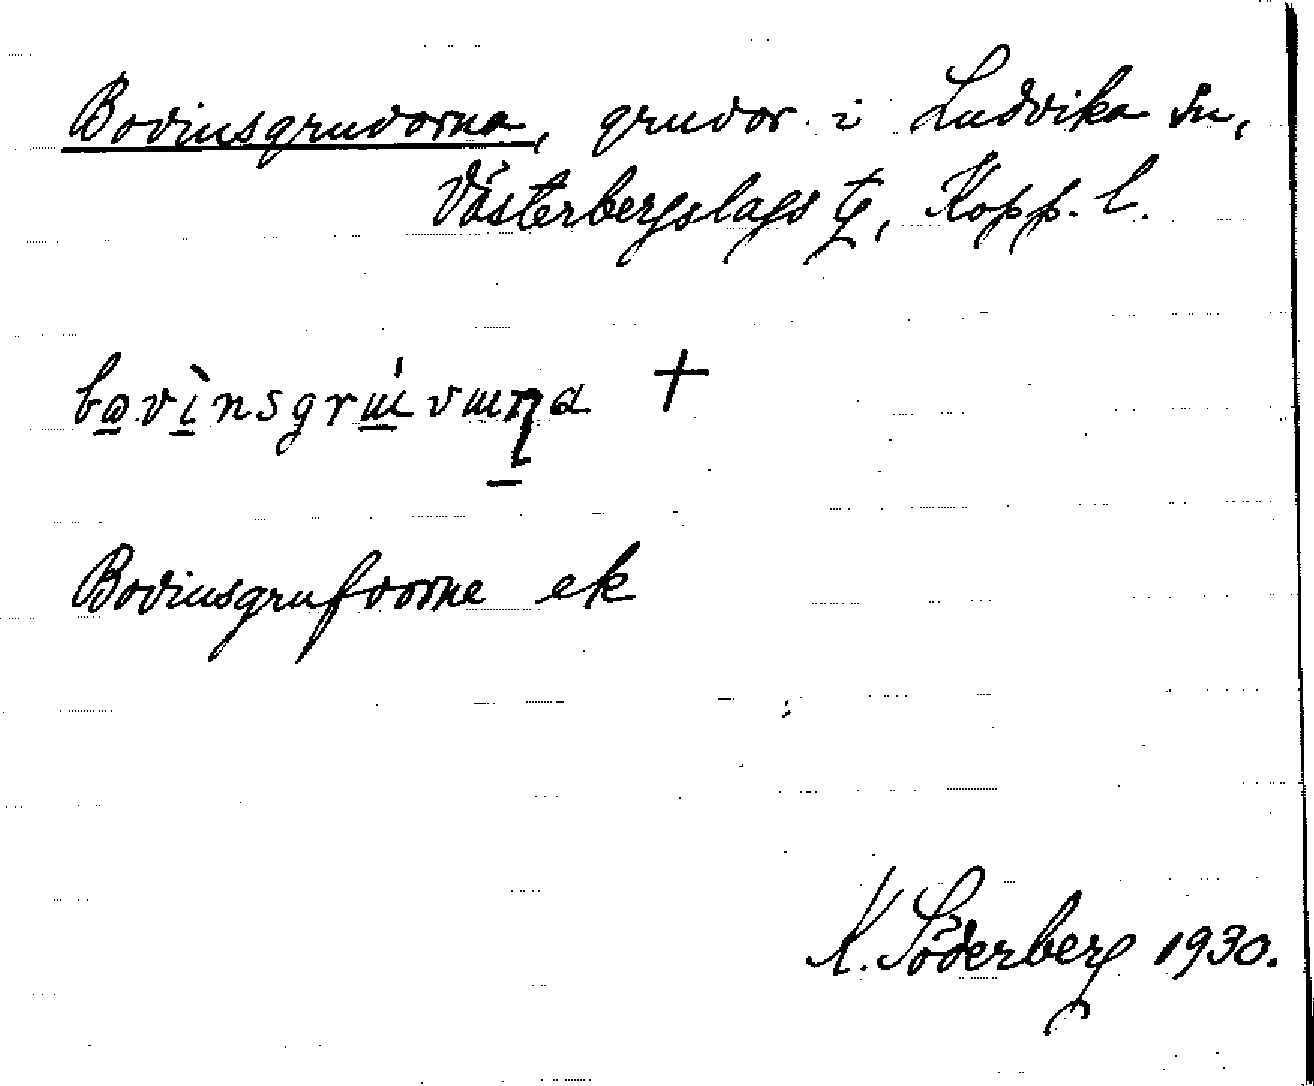 Bovinsgruvorna, gruvor i Ludvika sn,
Västerbergslags tg, Kopp. l.
bɷvìnsgrɯ́vɯɳa +
Bovinsgrufvorne ek
K. Söderberg 1930.